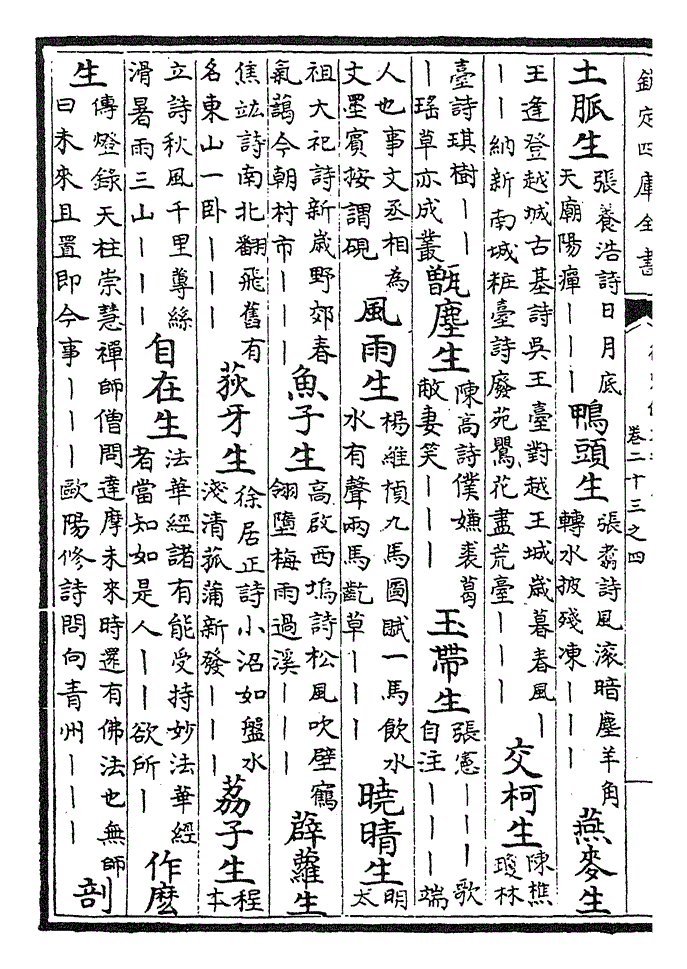 欽定四庫全書
卷二十三之四
土脈生 張養浩詩日月底天廟陽癉｜｜｜ 鴨頭生 張翥詩風滚暗塵羊角轉水披殘凍｜｜｜ 燕麥生
王逢登越城古基詩吳王臺對越王城歲暮春風｜｜｜納新南城粧臺詩廢苑鸎花盡荒臺｜｜｜ 交柯生 陳樵瓊林
臺詩琪樹｜｜｜瑤草亦成叢 甑塵生 陳高詩僕嫌裘葛敝妻笑｜｜｜ 玉帶生 張憲｜｜｜歌自注｜｜｜端
人也事文丞相為文墨賓按謂硯 風雨生 楊維楨九馬圖賦一馬飲水水有聲兩馬齕草｜｜｜ 曉晴生 明太
祖大祀詩新歲野郊春氣藹今朝村市｜｜｜ 魚子生 高啟西塢詩松風吹壁鶴翎墮梅雨過溪｜｜｜ 薜蘿生
焦竑詩南北翻飛舊有名東山一卧｜｜｜ 荻牙生 徐居正詩小沼如盤水淺清菰蒲新發｜｜｜ 荔子生 程本
立詩秋風千里蓴絲滑暑雨三山｜｜｜ 自在生 法華經諸有能受持妙法華經者當知如是人｜｜欲所｜ 作麽
生 傳燈錄天柱崇慧禪師僧問達摩未來時還有佛法也無師曰未來且置即今事｜｜｜歐陽修詩問向青州｜｜｜ 剖